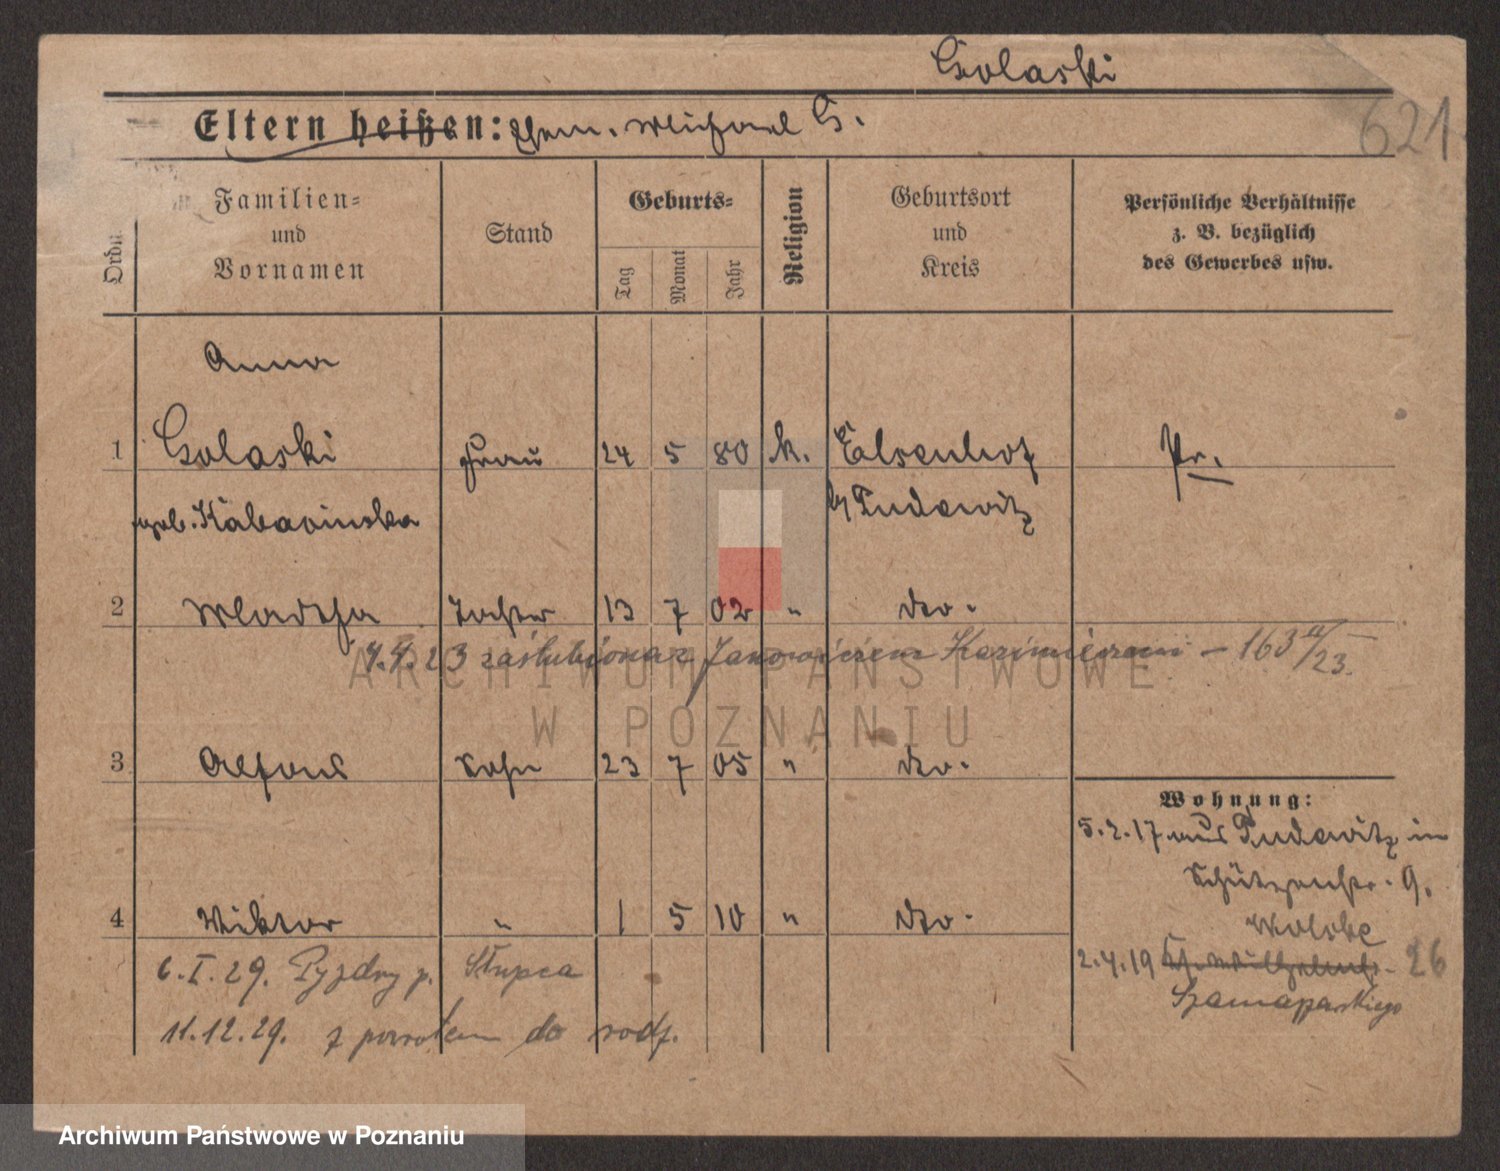 Golaski
621
Eltern heißen: Ehem. Michael G.
Ordn.
Familien-
und
Vornamen
Stand
Geburts-
Tag
Monat
Jahr
Religion
Geburtsort
und
Kreis
Persönliche Verhältnisse
z. B. bezüglich
des Gewerbes usw.
Anna
1 Golaski Frau 24 5 80 k. Elsenhof Pr.
geb. Kabacinska by Pudewitz
2 Wladisla Tochter 13 7 02 " dto.
4.4.23 zaślubiona z Janowiczem Kazimierzem - 163 /23.
3 Alfons Sohn 23 7 05 " dto.
4 Wiktor " 1 5 10 " dto.
6.I.29. Pyzdry p. Słupca
11.12.29. z powrotem do rodz.
Wohnung:
5.2.17 aus Pudewitz in
Schützenstr. 9.
2.4.19 26
ARCHIWUM PAŃSTWOWE
W POZNANIU
Archiwum Państwowe w Poznaniu